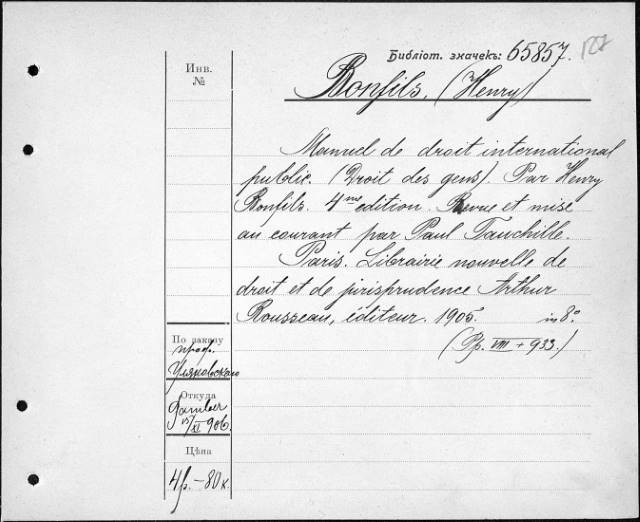 Библіот. значекъ: 65857. 127
Инв.
№
Bonfils. (Henry)
Manuel de droit international
public. (Droit des gens). Par Henry
Bonfils. 4me edition. Revue et mise
au courant par Paul Fauchille.
Paris. Librairie nouvelle de
droit et de jurisprudence Arthur
Rousseau, éditeur. 1905. in 8º.
(Pp. VIII + 933.)
По заказу
проф.
Уляновскаго
Откуда
15/XI 906
Цѣна
4 р. – 80 к.